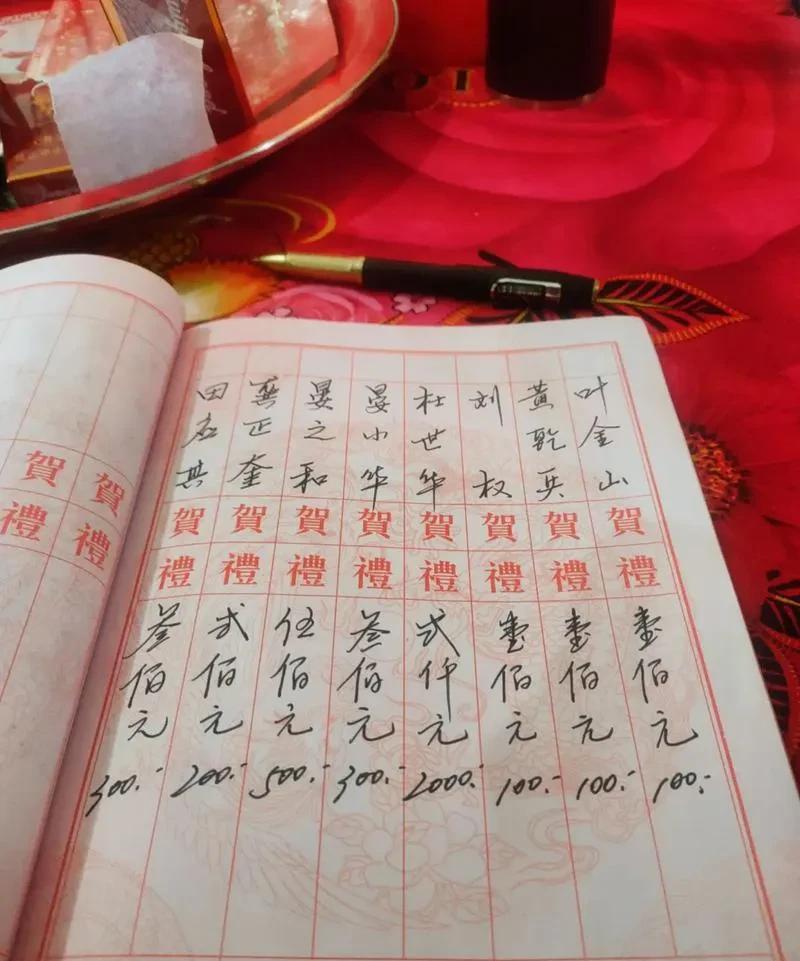 叶金山 賀禮 壹佰元 100.-
黄乾兵 賀禮 壹佰元 100.-
刘权 賀禮 壹佰元 100.-
杜世华 賀禮 弍仟元 2000.-
晏小华 賀禮 叁佰元 300.-
晏之和 賀禮 伍佰元 500.-
龚正奎 賀禮 弍佰元 200.-
田应其 賀禮 叁佰元 300.-
賀禮
賀禮